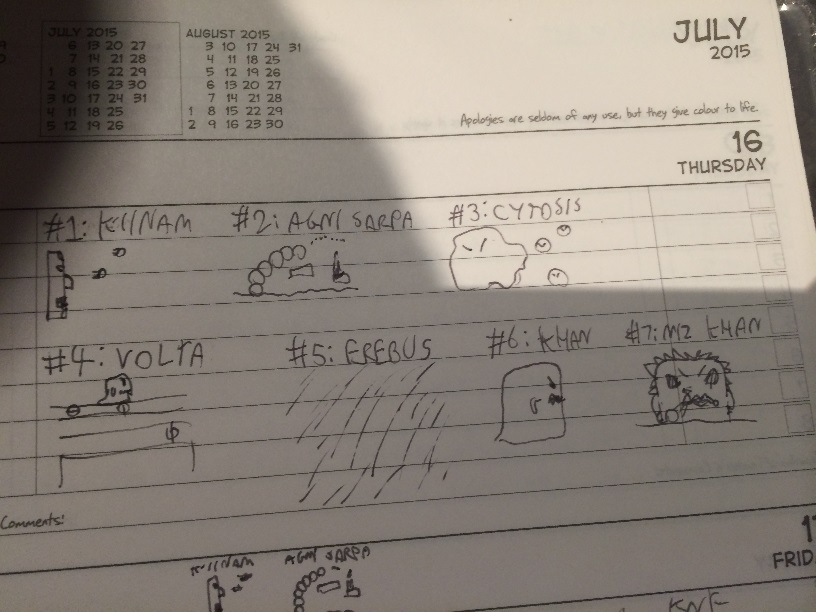 JULY 2015
6 13 20 27
7 14 21 28
1 8 15 22 29
2 9 16 23 30
3 10 17 24 31
4 11 18 25
5 12 19 26
AUGUST 2015
3 10 17 24 31
4 11 18 25
5 12 19 26
6 13 20 27
7 14 21 28
1 8 15 22 29
2 9 16 23 30
JULY
2015
Apologies are seldom of any use, but they give colour to life.
16
THURSDAY
#1: KIINAM #2: AGNI SARPA #3: CYTOSIS
#4: VOLTA #5: EREBUS #6: KHAN #7: M2 KHAN
Comments:
17
FRID
KIINAM AGNI SARPA